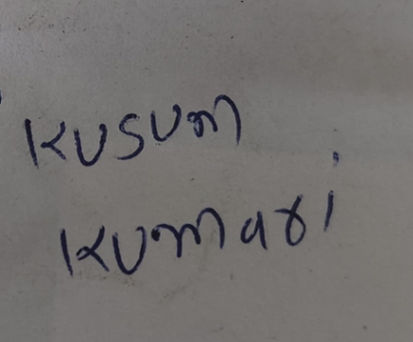 Kusum
Kumari